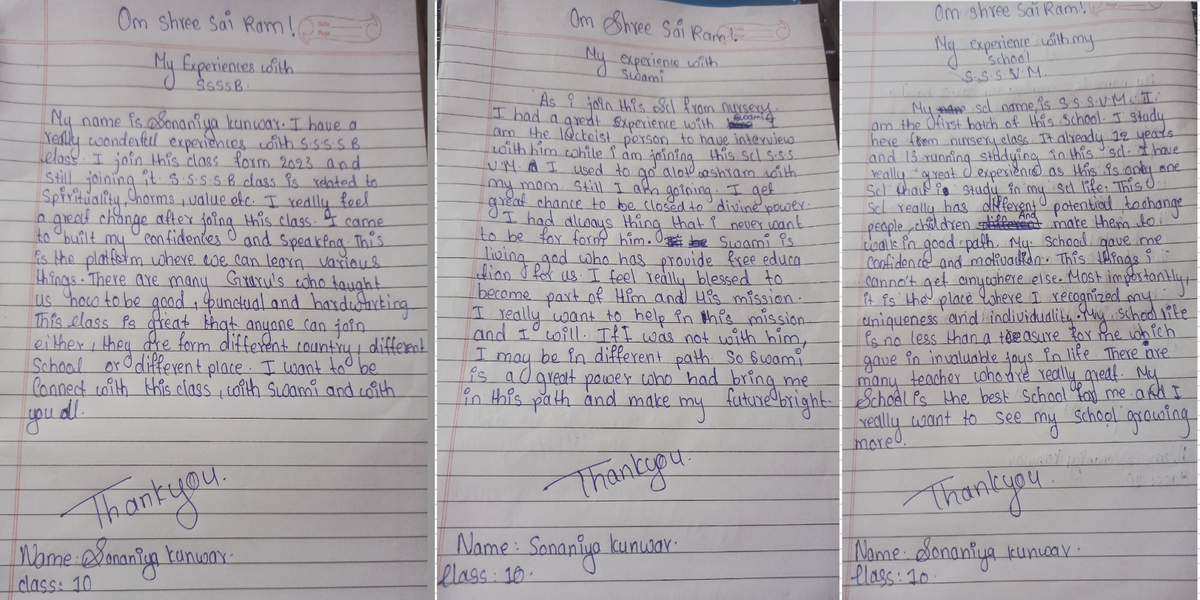 Om Shree Sai Ram!
My Experiences with
SSSSB.
My name is Sonaniya kunwar. I have a
really wonderful experiences with S.S.S.S B
class. I join this class form 2023 and
still joining it. S.S.S.S.B class is related to
Spirituality, norms, value etc. I really feel
a great change after joing this class. I came
to built my confidences and speaking. This
is the platform where we can learn various
things. There are many Guru's who taught
us how to be good, punctual and hardworking
This class is great that anyone can join
either, they are form different country, different
School or different place. I want to be
Connect with this class, with Swami and with
you all.
Thankyou.
Name: Sonaniya kunwar.
class: 10
Om Shree Sai Ram!
My experience with
Swami
As i join this scl from nursery
I had a great experience with Swami I
am the luckeist person to have interview
with him while i am joining this scl S.S.S
V.M. I used to go alow ashram with
my mom still I am going. I get
great chance to be closed to divine power.
I had always thing that i never want
to be for form him. Swami is
living god who has provide free educa
tion for us. I feel really blessed to
become part of Him and His mission.
I really want to help in this mission
and I will. If I was not with him,
I may be in different path. So Swami
is a great power who had bring me
in this path and make my future bright.
Thankyou.
Name: Sonaniya kunwar.
Class: 10.
Om Shree Sai Ram!
My experience with my
school
S.S.S.V.M.
My scl name is S.S.S.V.M. I
am the first batch of this School. I study
here from nursery class. It already 12 years
and 13 running studying in this scl. I have
really great experience as this is only one
scl that i study in my scl life. This
Scl really has different potential to change
people, children And make them to
walk in good path. My school gave me
confidence and motivation. This things i
cannot get anywhere else. Most importantly,
it is the place where I recognized my
uniqueness and individuality. My school life
is no less than a treasure for me which
gave in invaluable joys in life. There are
many teacher who are really great. My
School is the best school for me and I
really want to see my school growing
more.
Thankyou.
Name: Sonaniya kunwar.
Class: 10.